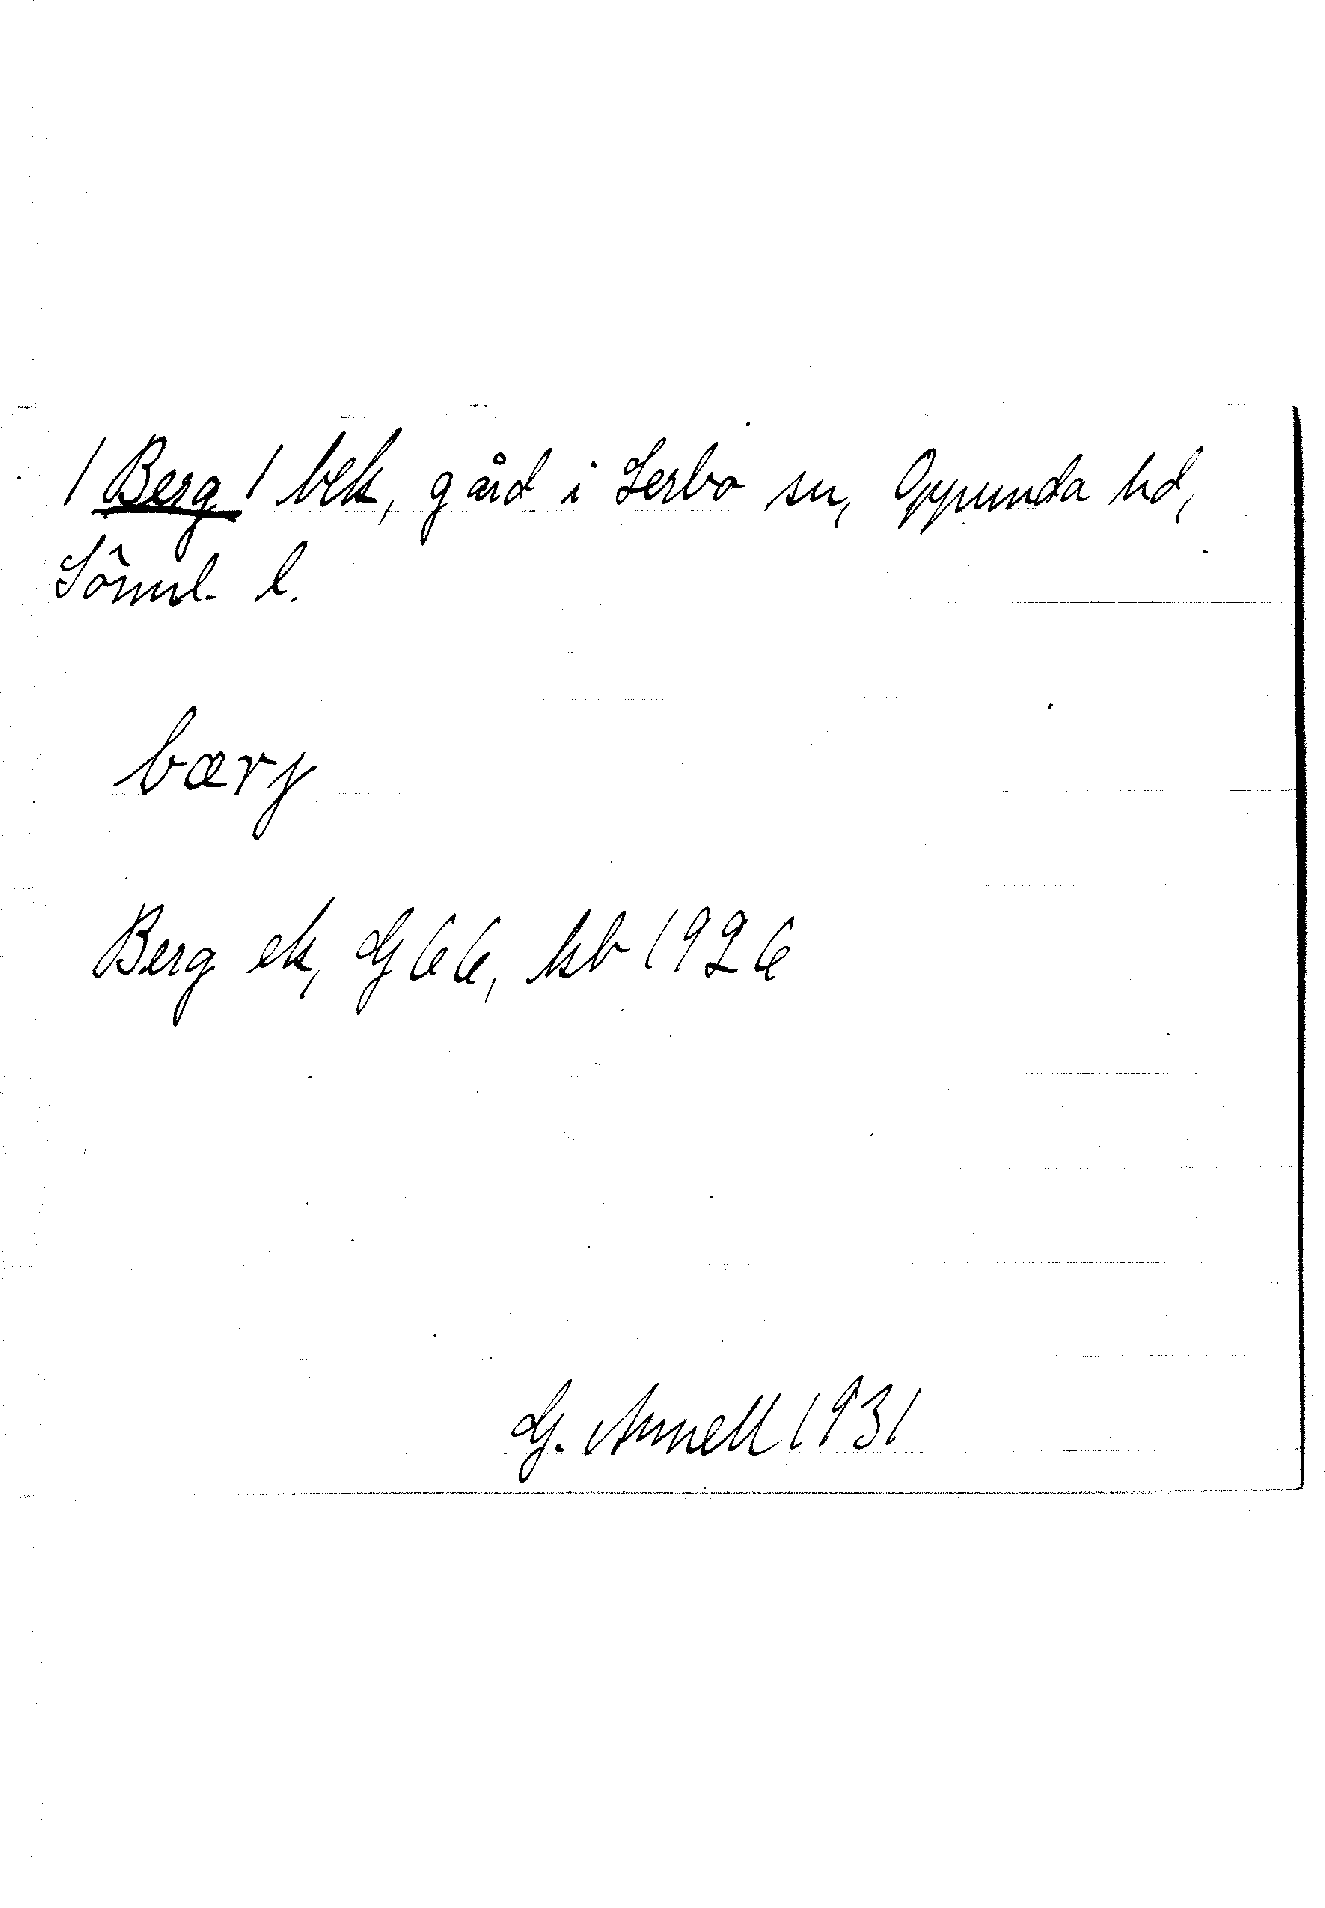 /Berg/ bek, gård i Lerbo sn, Oppunda hd,
Sörml. l.
bærj
Berg ek, G 66, kb 1926
G. Annell 1931